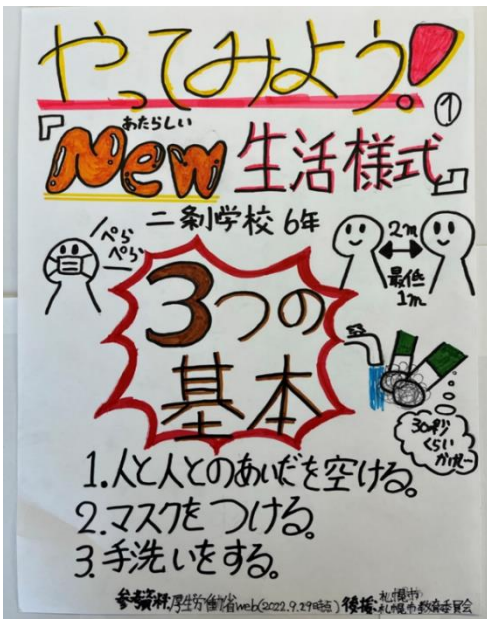 やってみよう!
①
あたらしい
『New生活様式』
二条小学校 6年
ぺら
ぺら
2m
最低
1m
3つの
基本
30秒
くらい
かけて
1.人と人とのあいだを空ける。
2.マスクをつける。
3.手洗いをする。
参考資料:厚生労働省web(2022.9.29時点) 後援:札幌市
札幌市教育委員会